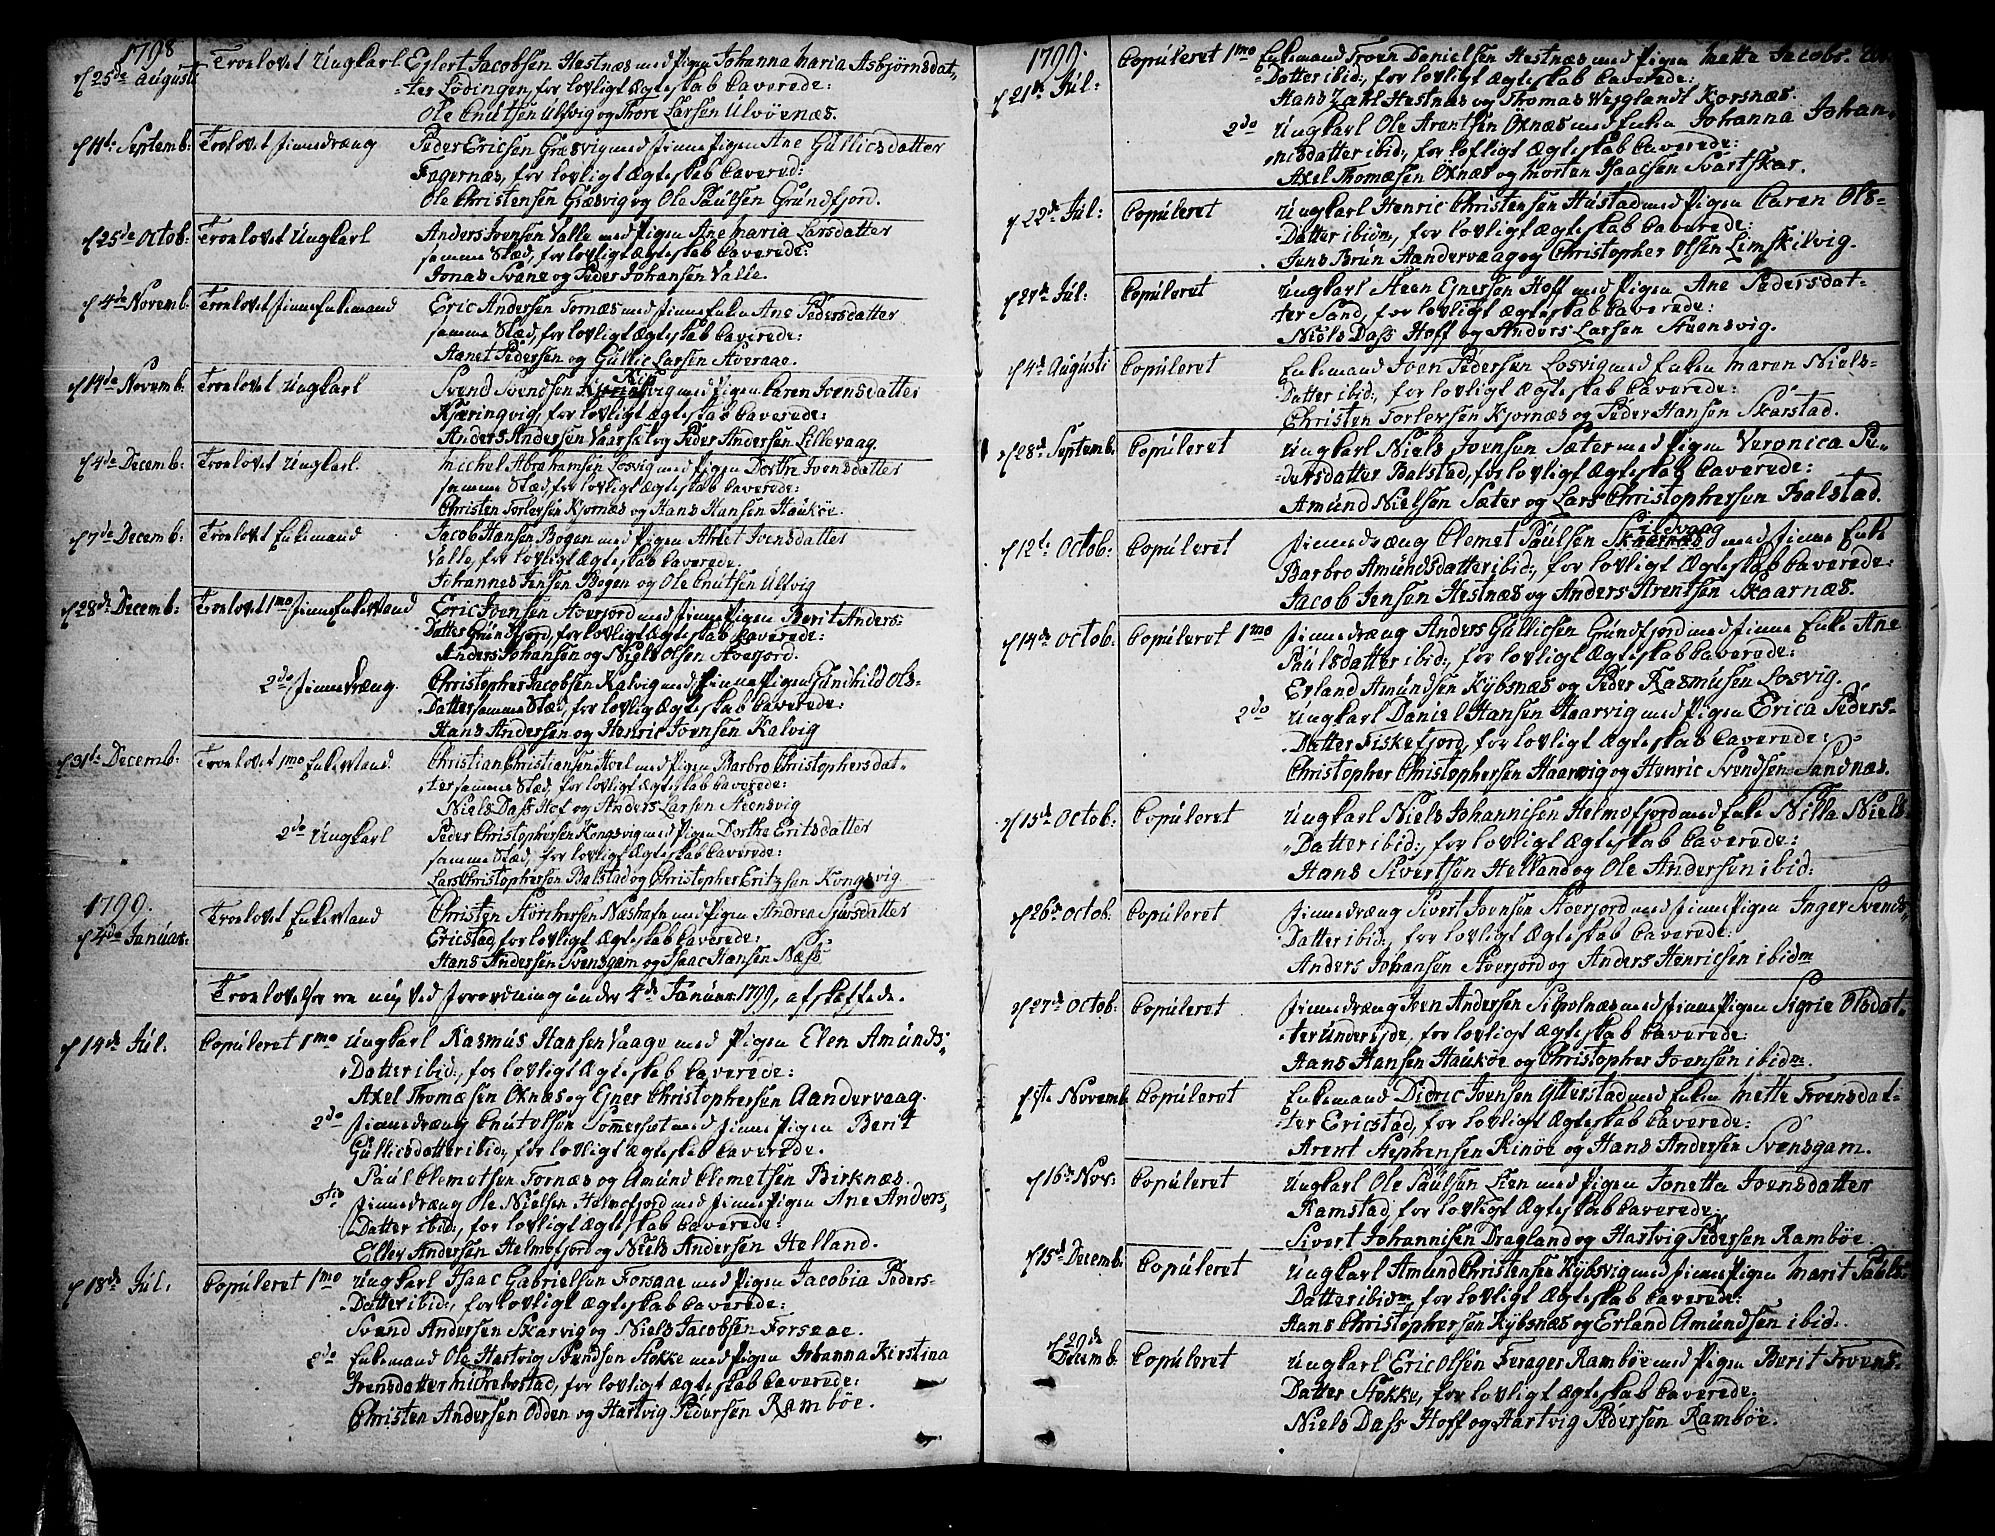 1798
d 25de Augusti Troelovet Ungkarl Eglert Jacobsen Hestnæs med Pigen Johanna Maria Asbjørnsdat-
ter Lödingen, for lovligt Ægteskab Caverede:
Ole Cnutsen Ulsvig og Thore Larsen Ulvöenæs.
d 11te Septemb: Troelovet Finnedræng Peder Ericsen Græsvig med Finne Pigen Ane Gullicsdatter
Fagernæs, for lovligt Ægteskab Cavered:
Ole Christensen Græsvig og Ole Paulsen Grundfjord.
d 25de Octob: Troelovet Ungkarl Anders Ivensen Valle med Pigen Ane Maria Larsdatter
samme Stæd, for lovligt Ægteskab Caverede:
Jonas Svane og Peder Johansen Valle.
d 4de Novemb: Troelovet Finne Enkemand Eric Andersen Tornæs med Finne Enke Ane Pedersdatter
samme Stæd, for lovligt Ægteskab Caverede:
Aanet Pedersen og Gullic Larsen
d 14de Novemb: Troelovet Ungkarl Svend Svendsen med Pigen Caren Ivensdatter
Kjæringvig, for lovligt Ægteskab Caverede:
Anders Andersen Vaarskil og Peder Andersen Lillevaag.
d 4de Decemb: Troelovet Ungkarl. Michel Abrahamsen Losvig med Pigen Dorthe Ivensdatter
samme Stæd, for lovligt Ægteskab Caverede:
Christen Torlevsen Kjornæs og Hans Hansen Haukøe.
d 7de Decemb: Troelovet Enkemand Jacob Hansen Bogen med Pigen Ahlet Ivensdatter
Valle, for lovligt Ægteskab Caverede.
Johannes Jensen Bogen og Ole Cnutsen Ulsvig
d 28de Decemb: Troelovet 1mo Finne Enkemand Eric Ivensen med Finne Pigen Berit Anders-
Datter Grundfjord, for lovligt Ægteskab Caverede:
Anders Johansen og Niels Olsen
2do Finnedræng. Christopher Jacobsen Kalvig med Finne Pigen Gunhild Ols-
Datter samme Stæd, for lovligt Ægteskab Caverede:
Hans Andersen og Henric Ivensen Kalvig
d 31te Decemb: Troelovet 1mo Enkemand Christian Christiansen Hoel med Pigen Barbro Christophersdat-
ter samme Stæd, for lovligt Ægteskab Caverede:
Niels Dass Hof og Anders Larsen Steensvig
2do Ungkarl Peder Christophersen Kongsvig med Pigen Dorthe Eritsdatter
samme Stæd, for lovligt Ægteskab Caverede:
Lars Christophersen Balstad og Christopher Eritzsen Kongsvig.
1799.
d 4de Januar: Troelovet Enkemand Christen Störchersen Næshafn med Pigen Andrea Sjursdatter
Ericstad, for lovligt Ægteskab Caverede:
Hans Andersen Svensgam og Isaac Hansen Næss
Troelovelser ere nu, ved Forordning under 4de Januar: 1799, afskaffede.
d 14de Jul: Copuleret 1mo Ungkarl Rasmus Hansen Vaage med Pigen Elen Amunds-
Datter ibid:, for lovligt Ægteskab Caverede:
Axel Thomæsen Oxnæs og Ejner Christophersen Aandervaag.
2do Finnedræng Cnut Olsen Tomerset med Finne Pigen Berit
Gullicsdatter ibid:, for lovligt Ægteskab Caverede.
Paul Clemetsen Tornæs og Amund Clemetsen Birknæs.
3tio Finnedræng Ole Nielsen Helmofjord med Finne Pigen Ane Anders-
Datter ibid:, for lovligt Ægteskab Caverede:
Eller Andersen Helmofjord og Niels Andersen Helland.
d 18de Jul: Copuleret 1mo Ungkarl Isaac Gabrielsen Forsaae med Pigen Jacobia Peders-
Datter ibid:, for lovligt Ægteskab Caverede:
Svend Andersen Skarvig og Niels Jacobsen Forsaae.
2do Enkemand Ole Hartvig Svendsen Stokke med Pigen Johanna Kirstina
Ivensdatter for lovligt Ægteskab Caverede:
Christen Andersen Odden og Hartvig Pedersen Rambøe.
1799.
d 21de Jul: Copuleret 1mo Enkemand Troen Danielsen Hestnæs med Pigen Mette Jacobs-
Datter ibid:, for lovligt Ægteskab Caverede:
Hans Zahl Hestnæs og Thomas Korsnæs.
2do Ungkarl Ole Arentsen Oxnæs med Enken Johanna Johan-
nisdatter ibid:, for lovligt Ægteskab Caverede:
Axel Thomæsen Oxnæs og Morten Isaacsen Svartskar.
d 22de Jul: Copuleret Ungkarl Henric Christensen Hustad med Pigen Caren Ols-
Datter ibidm, for lovligt Ægteskab Caverede:
Jens Brun Aandervaag og Christopher Olsen Limskilvig.
d 27de Jul: Copuleret Ungkarl Steen Ejnersen Hoff med Pigen Ane Pedersdat-
ter Sand, for lovligt Ægteskab Caverede:
Niels Dass Hoff og Anders Larsen Steensvig.
d 4de Augusti Copuleret Enkemand Iven Pedersen Losvig med Enken Maren Niels-
Datter ibid:, for lovligt Ægteskab Caverede:
Christen Torlevsen Kjornæs og Peder Hansen Skarstad.
d 28de Septemb: Copuleret Ungkarl Niels Ivensen Sæter med Pigen Veronica Pe-
dersdatter Balstad, for lovligt Ægteskab Caverede:
Amund Nielsen Sæter og Lars Christophersen Balstad.
d 12te Octob: Copuleret Finnedræng Clemet Paulsen Skaarnæs med Finne Enke
Barbro Amundsdatter ibid:, for lovligt Ægteskab Caverede:
Jacob Jensen Hestnæs og Anders Arentsen Skaarnæs.
d 14de Octob: Copuleret 1mo Finnedræng Anders Gullicsen Grundfjord med Finne Enke Ane
Paulsdatter ibid:, for lovligt Ægteskab Caverede:
Erland Amundsen Kybsnæs og Peder Rasmusen Losvig.
2do Ungkarl Daniel Hansen Haarvig med Pigen Erica Peders-
Datter Fiskefjord, for lovligt Ægteskab Caverede:
Christopher Christophersen Haarvig og Henric Svendsen Sandnæs.
d 15de Octob: Copuleret Ungkarl Niels Johannisen Helmofjord med Enke Nilla Niels-
Datter ibid:, for lovligt Ægteskab Caverede:
Hans Sivertsen Helland og Ole Andersen ibid:
d 26de Octob. Copuleret Finnedræng Sivert Ivensen med Finne Pigen Inger Svends-
Datter ibid:, for lovligt Ægteskab Caverede:
Anders Johansen og Anders Henricsen ibidm
d 27de Octob: Copuleret Finnedræng Iven Andersen med Finne Pigen Sigrie Olsdat-
ter for lovligt Ægteskab Caverede:
Hans Hansen Haukøe og Christopher Ivensen ibidm.
Novemb Copuleret Enkemand Dideric Ivensen Ytterstad med Enken Mette Troensdat-
ter Ericstad, for lovligt Ægteskab Caverede:
Arent Stephensen Rinöe og Hans Andersen Svensgam.
d 16de Nov: Copuleret Ungkarl Ole Paulsen Lien med Pigen Jonetta Ivensdatter
Ramstad, for lovligt Ægteskab Caverede:
Sivert Johannisen Dragland og Hartvig Pedersen Rambøe.
d 15de Decemb: Copuleret Ungkarl Amund Christensen Kybsvig med Finne Pigen Marit Pauls-
Datter ibidm, for lovligt Ægteskab Caverede:
Hans Christophersen Kybsnæs og Erland Amundsen ibid:.
d 29de
Decemb: Copuleret Ungkarl Eric Olsen Rambøe med Pigen Berit Troens-
Datter Stokke, for lovligt Ægteskab Caverede:
Niels Dass Hoff og Hartvig Pedersen Rambøe.